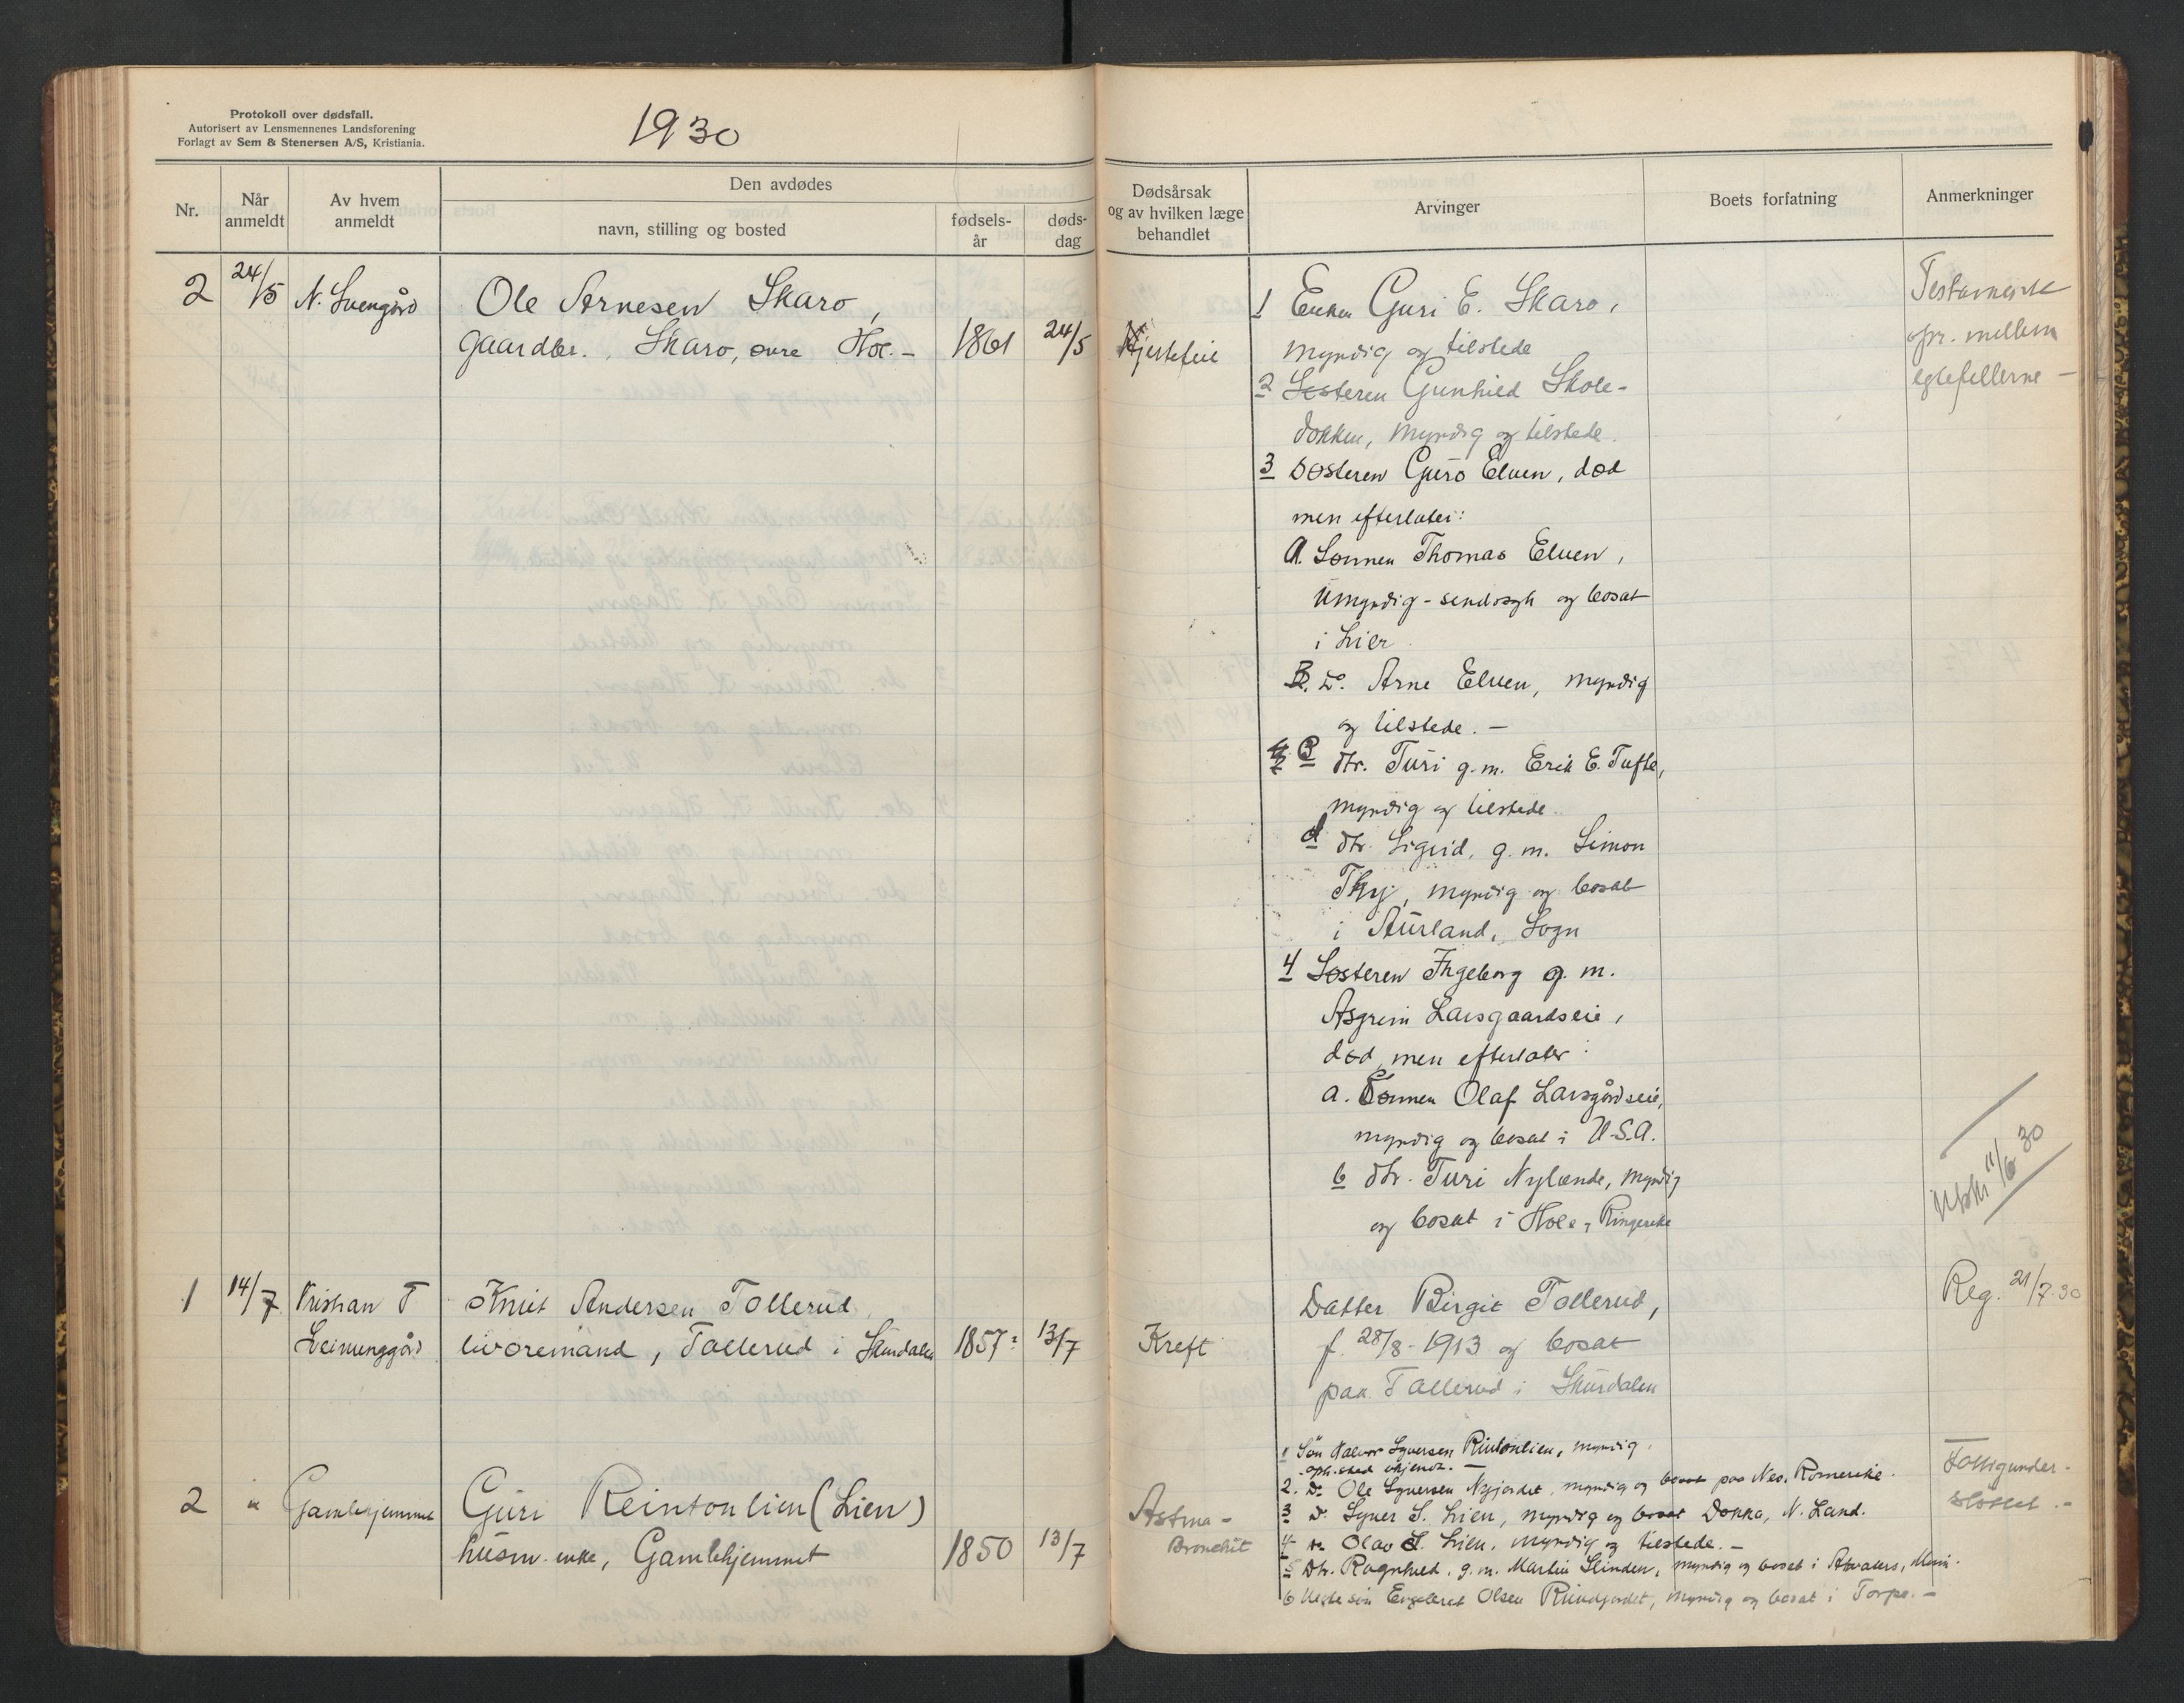 Protokoll over dødsfall.
Autorisert av Lensmennenes Landsforening
Forlagt av Sem & Stenersen A/S, Kristiania.
1930
Nr.
Når anmeldt
Av hvem anmeldt
Den avdødes
navn, stilling og bosted
fødsels-år
døds-dag
Dødsårsak
og av hvilken læge
behandlet
Arvinger
Boets forfatning
Anmerkninger
2 24/5 N. Svengård Ole Arnesen Skaro,
gaardbr. Skaro, øvre Hol. - 1861 24/5 Hjertefeil
1 Enken Guri E. Skaro,
myndig og tilstede
2 Søsteren Gunhild Skole-
dokken, myndig og tilstede.
3 Søsteren Guro Elven, død
men efterlater:
A. Sønnen Thomas Elven,
umyndig - sindssyk og bosat
i Lier
B. Do. Arne Elven, myndig
og tilstede. -
C dtr. Turi g.m. Erik E. Tufte,
myndig og tilstede.
d dtr. Sigrid, g. m. Simon
Thy, myndig og bosat
i Aurland, Sogn
4 Søsteren Ingeborg g. m.
Asgrim Larsgaardseie,
død, men efterlater:
a. Sønnen Olaf Larsgårdseie,
myndig og bosat i U.S.A.
b dtr. Turi Nylænde, myndig
og bosat i Hole, Ringerike
Testamente
opr. mellem
egtefellerne -
11/6 30
1 14/7 Kristian T
Leinunggård
Knut Andersen Tollerud
livøremand, Tollerud i Skurdalen 1857 13/7 Kreft
Datter Birgit Tollerud,
f. 28/8 - 1913 og bosat
paa Tollerud i Skurdalen
Reg. 21/7.30
2 " Gamlehjemmet Guri Reintonlien (Lien)
husm. enke, Gamlehjemmet 1850 13/7 Astma -
Bronchit
1 Søn Halvor Syversen Rintonlien, myndig,
oph.sted ukjendt. -
2. Do Ole Syversen Nyjordet, myndig og bosat paa Nes, Romerike.
3 Do Syver S. Lien, myndig og bosat Dokka, N. Land.
4 Do Olav S. Lien, myndig og tilstede. -
5 Dtr. Ragnhild, g.m. Martin Slinden, myndig og bosat i Atwaters, Minn.
6 Uegte søn Engebret Olsen Rundjordet, myndig og bosat i Torpo. -
Fattigunder-
støttet. -